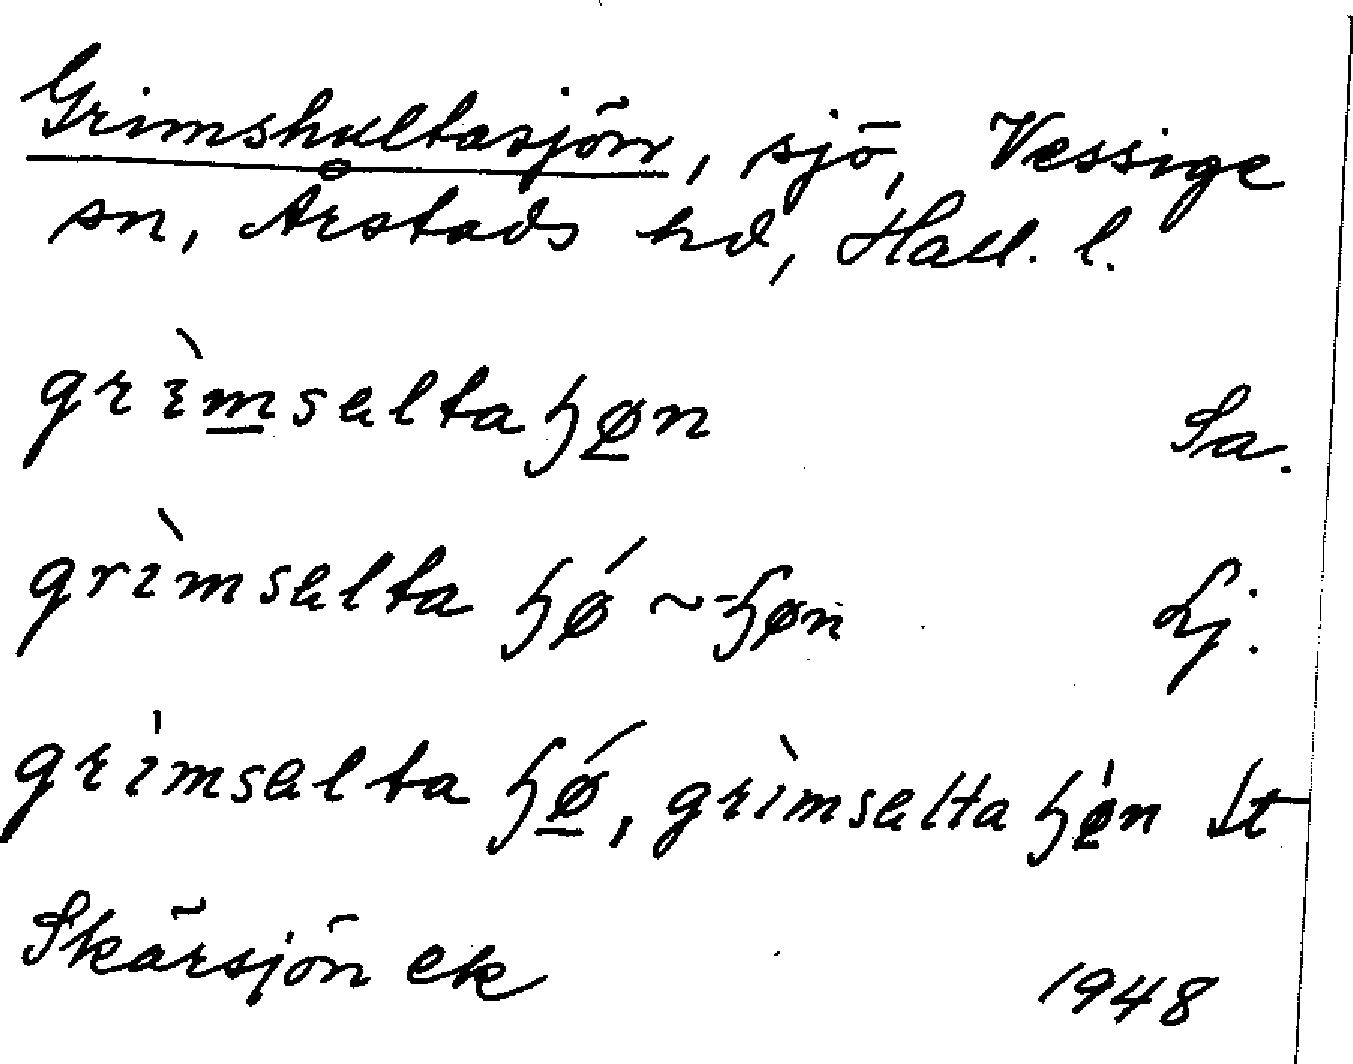 Grimshultasjön, sjö, Vessige
sn, Årstads hd, Hall. l.
grìmsɐltaɧøn Sa.
grìmsɐlta ɧǿ ~ -ɧøn Lj.
grimsɐlta ɧǿ, grìmsɐltaɧøn St
Skärsjön ek 1948